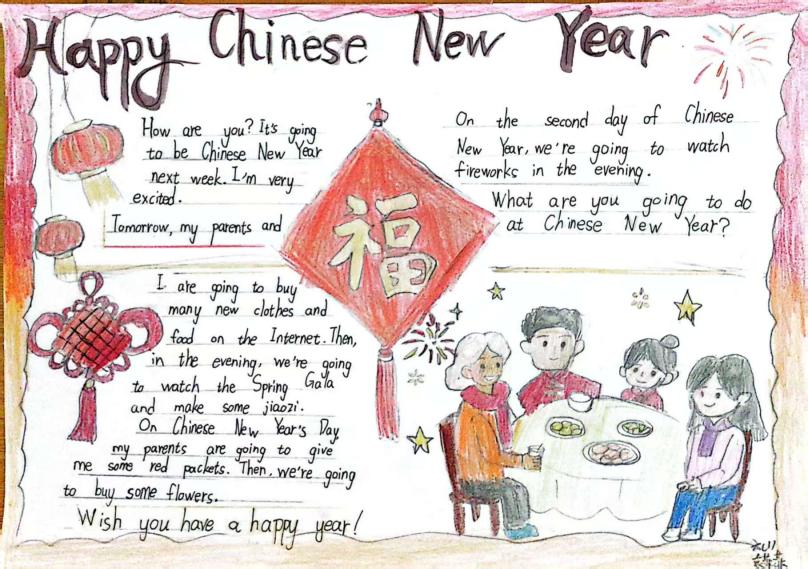 Happy Chinese New Year
How are you? It's going
to be Chinese New Year
next week. I'm very
excited.
Tomorrow, my parents and
I are going to buy
many new clothes and
food on the Internet. Then,
in the evening, we're going
to watch the Spring Gala
and make some jiaozi.
On Chinese New Year's Day,
my parents are going to give
me some red packets. Then, we're going
to buy some flowers.
Wish you have a happy year!
福
On the second day of Chinese
New Year, we're going to watch
fireworks in the evening.
What are you going to do
at Chinese New Year?